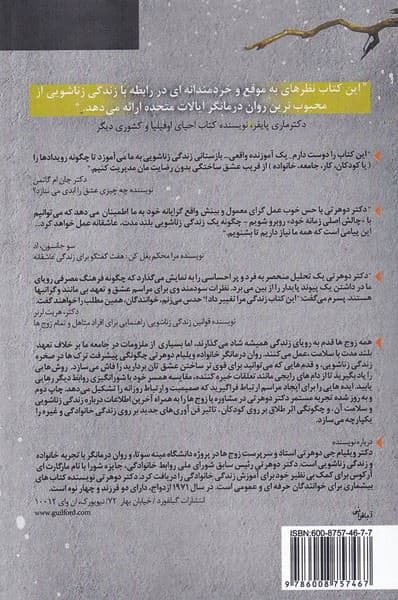 "این کتاب نظرهای به موقع و خردمندانه ای در رابطه با زندگی زناشویی از
محبوب ترین روان درمانگر ایالات متحده ارائه می‌دهد."
دکترماری پایفر، نویسنده کتاب احیای اوفیلیا و کشوری دیگر
"این کتاب را دوست دارم... یک آموزنده واقعی- بازستانی زندگی زناشویی به ما می‌آموزد تا چگونه رویدادها را
(یا کودکان، کار، جامعه، خانواده) از فریب عشق ساختگی بدون رضایت مان مدیریت کنیم."
دکتر جان ام گاتمن
نویسنده چه چیزی عشق را ابدی می سازد؟
"دکتر دوهرتی با حس خوب عمل گرای معمول و بینش واقع گرایانه خود به ما اطمینان می دهد که می‌توانیم
با «چالش اصلی زمانه خود» روبرو شویم - چگونه یک زندگی زناشویی بلند مدت، عاشقانه عمل خواهد کرد.
این پیامی است که همه ما نیاز داریم تا بشنویم."
سو جانسون، اد
نویسنده مرا محکم بغل کن: هفت گفتگو برای زندگی عاشقانه
"دکتر دوهرتی یک تحلیل منحصر به فرد و پر احساسی را به نمایش می‌گذارد که چگونه فرهنگ مصرفی رویای
ما در داشتن یک پیوند پایدار را از بین می‌برد. نظرات سودمند وی برای مراسم عشق و تعهد بی مانند و گرانبها
هستند. پسرم می‌گفت "این کتاب زندگی مرا تغییر داد!" حدس می‌زنم، خوانندگان، همین مطلب را خواهند گفت.
دکتر، هریت لرنر
نویسنده قوانین زندگی زناشویی: راهنمایی برای افراد متاهل و تمام زوج ها
همه زوج ها قدم به رویای زندگی همیشه شاد می گذارند، اما بسیاری از ملزومات در جامعه ما بر خلاف تعهد
بلند مدت با سلامت، عمل می‌کنند. روان درمانگر خانواده ویلیام دوهرتی چگونگی پیشرفت ترک ها در صخره
زندگی زناشویی، و قدم هایی که می‌توانید برای قوی تر ساختن عشق تان بردارید را فاش می‌سازد. روش هایی
را یادبگیرید تا از دام های رایجی مانند تعلقات خیره کننده، مقایسه همسر خود با شورانگیزی روابط دیگر رهایی
یابید. ایده هایی را برای ایجاد مراسم ارتباط فراگیرید که صمیمیت و ارتباط روزانه را تشکیل می‌دهد. چاپ دوم
و به روز شده تجربه مستمر دکتر دوهرتی در مشاوره با زوج ها را به همراه آخرین اطلاعات درباره زندگی زناشویی
و سلامت آن، و چگونگی اثر طلاق بر روی کودکان، تاثیر فن آوری‌های جدید بر روی زندگی خانوادگی و غیره را
یکپارچه می‌سازد.
درباره نویسنده
دکتر ویلیام جی دوهرتی استاد و سرپرست زوج ها در پروژه دانشگاه مینه سوتا، و روان درمانگر با تجربه خانواده
و زندگی زناشویی است. دکتر دوهرتی رئیس سابق شورای ملی روابط خانوادگی، جایزه شورا با نام مارگارت ای
آرکوس برای کمک بی نظیر خود برای آموزش زندگی خانوادگی را دریافت کرد. دکتر دوهرتی نویسنده کتاب های
بیشماری برای خوانندگان حرفه ای و عمومی است. در سال ۱۹۷۱ ازدواج، دو فرزند و چهار نوه است.
انتشارات گیلفورد/ خیابان بهار ۷۲/ نیویورک، ان وای ۱۰۰۱۲
www.guilford.com
ISBN:600-8757-46-7-7
9 786008 757467